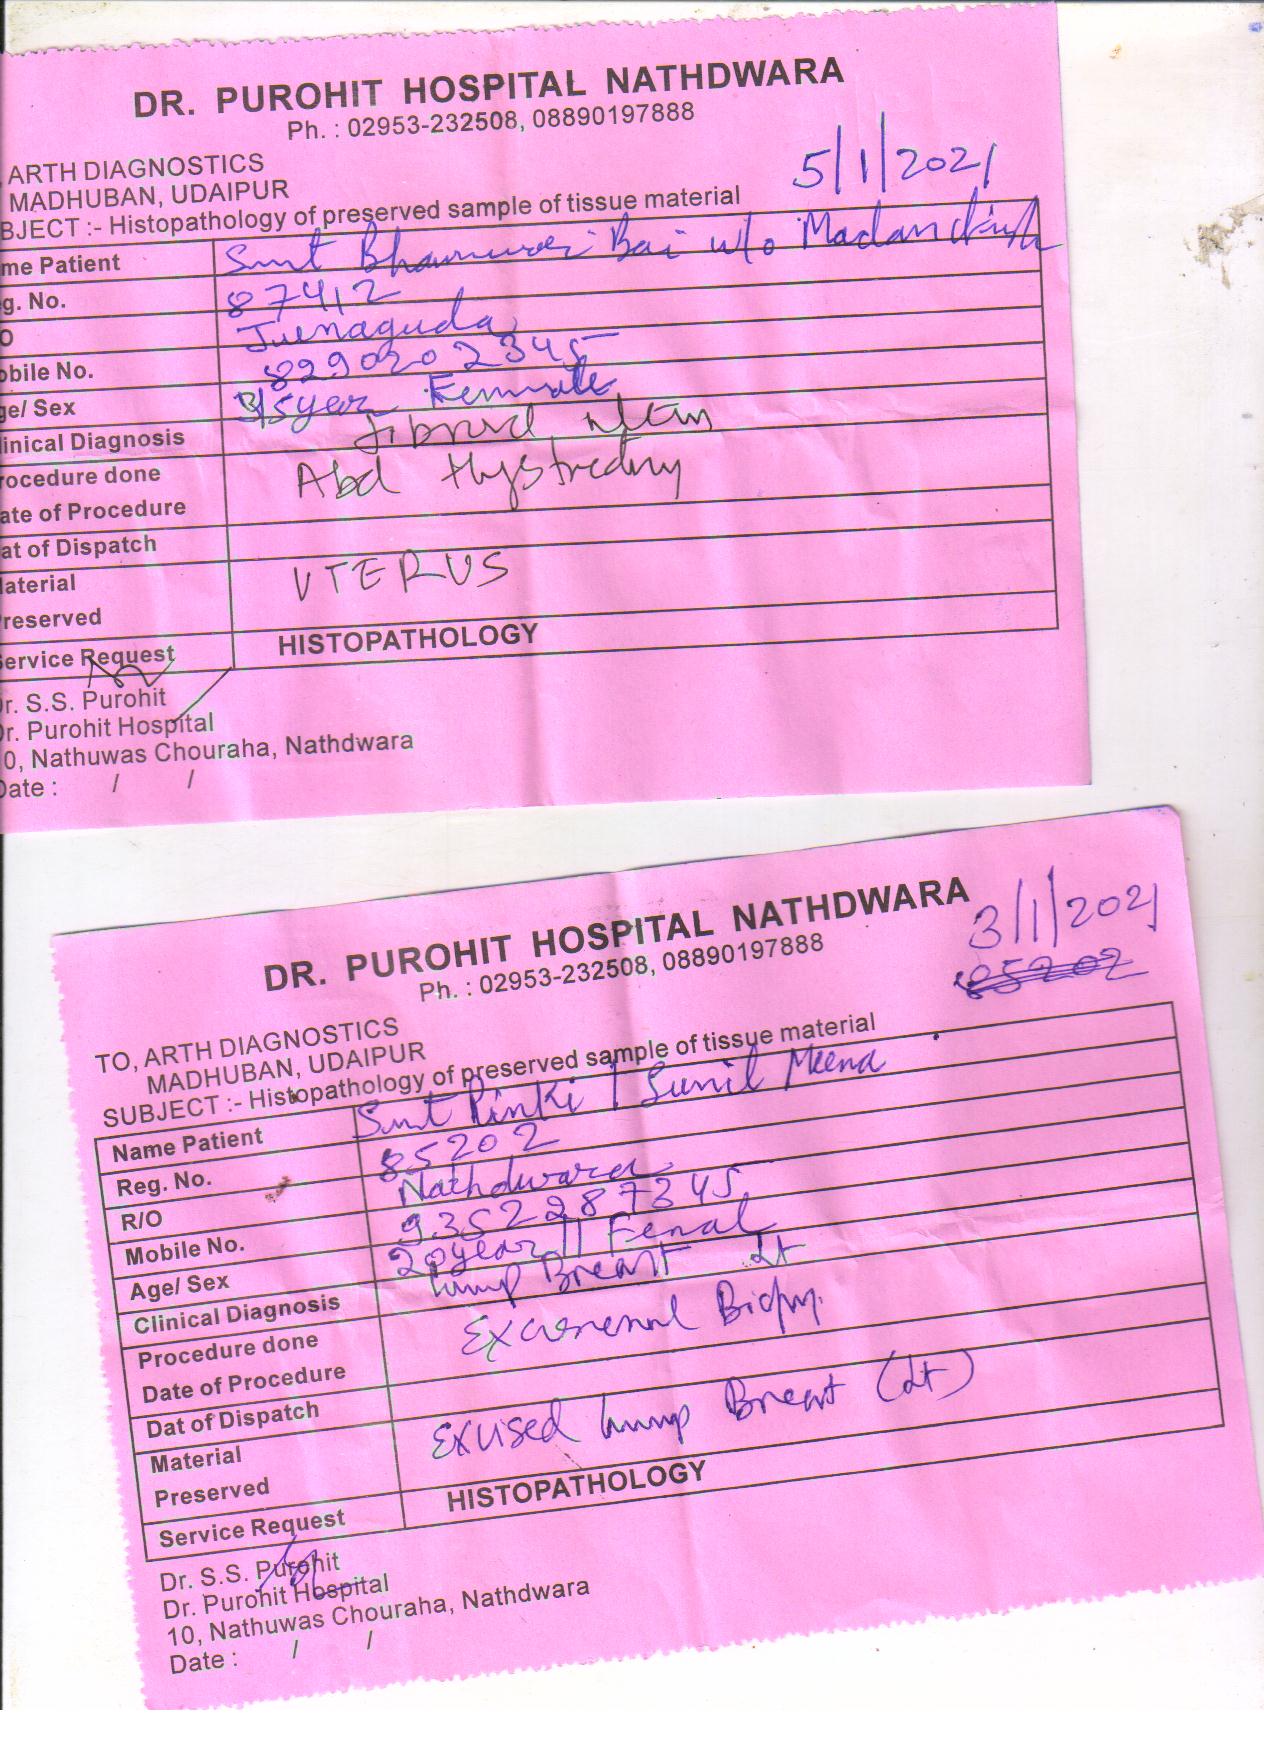 DR. PUROHIT HOSPITAL NATHDWARA
Ph. : 02953-232508, 08890197888
5/1/2021
ARTH DIAGNOSTICS
MADHUBAN, UDAIPUR
BJECT :- Histopathology of preserved sample of tissue material
me Patient Smt Bai w/o Madan
g. No. 87412
O
obile No. 8290202345
ge/ Sex year Female
linical Diagnosis
rocedure done Abd
ate of Procedure
at of Dispatch
aterial UTERUS
reserved
ervice Request HISTOPATHOLOGY
r. S.S. Purohit
r. Purohit Hospital
0, Nathuwas Chouraha, Nathdwara
Date : / /
DR. PUROHIT HOSPITAL NATHDWARA
3/1/2021
Ph. : 02953-232508, 08890197888
85202
TO, ARTH DIAGNOSTICS
MADHUBAN, UDAIPUR
SUBJECT :- Histopathology of preserved sample of tissue material
Name Patient Smt Pinki / Sunil Meena
Reg. No. 85202
R/O Nathdwara
Mobile No. 9352287345
Age/ Sex 20 year // Femal
Clinical Diagnosis Lump Breast Lt
Procedure done
Date of Procedure
Dat of Dispatch
Material Exused Lump Breast (Lt)
Preserved
Service Request HISTOPATHOLOGY
Dr. S.S. Purohit
Dr. Purohit Hospital
10, Nathuwas Chouraha, Nathdwara
Date : / /